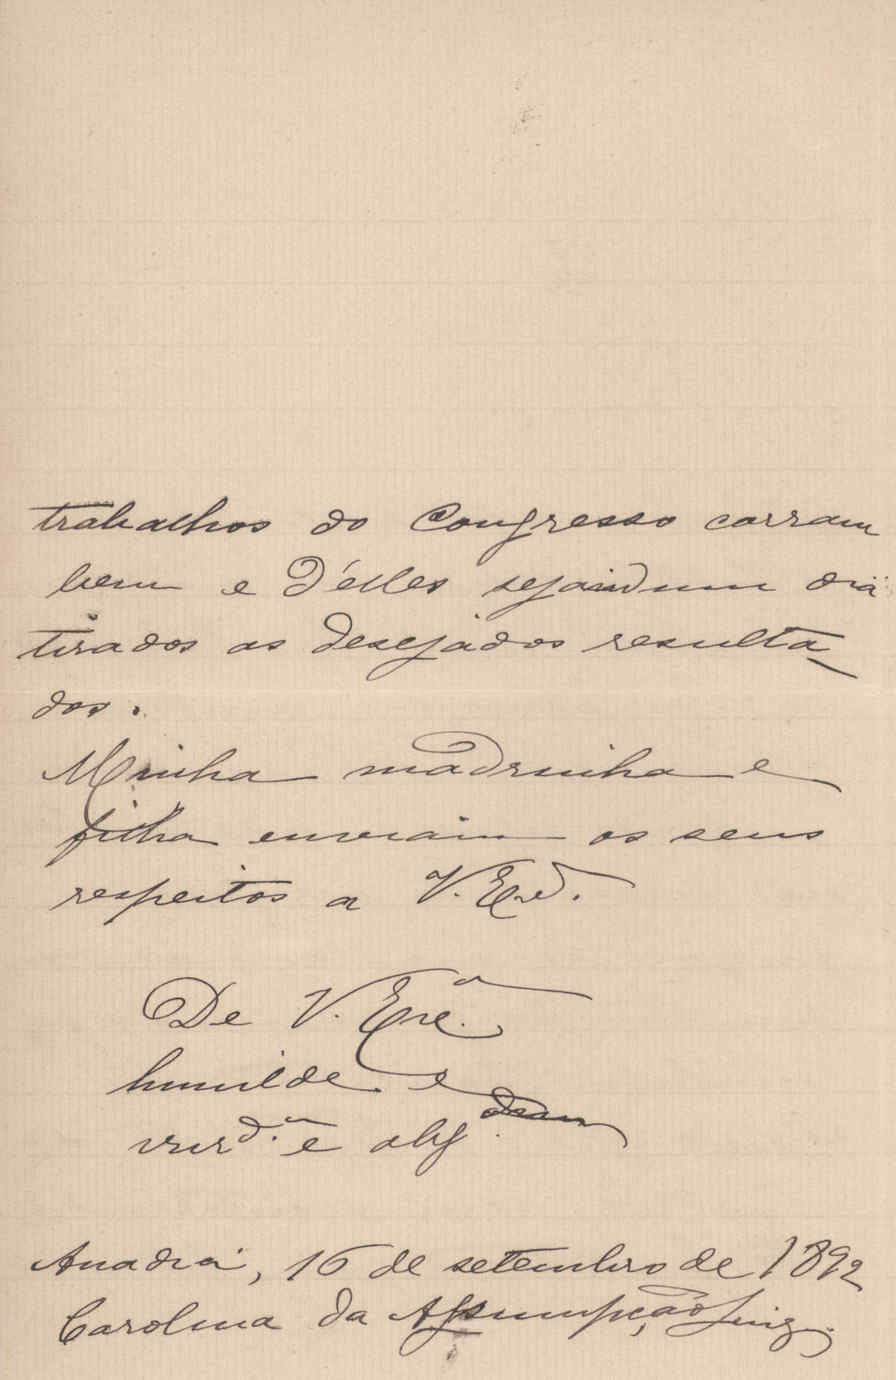 trabalhos do Congresso corram
bem e d'elles sejam um dia
tirados os desejados resulta-
dos.
Minha madrinha e
filha enviam os seus
respeitos a V. Exª.
De V. Exª.
humilde e
verdª. e obg
Anadia, 16 de setembro de 1892
Carolina da Assumpção Luiz